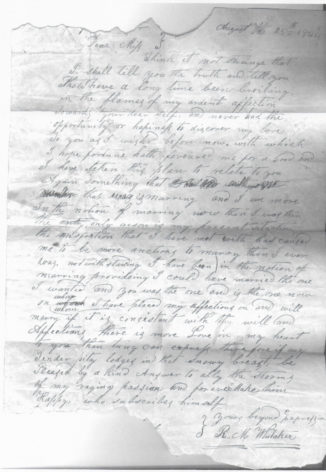 August the 25th 184
Dear Miss
Think it not strange that
I shall tell you the truth and tell you
that I have a long time been broiling
in the flames of my ardent affection
towards your dear self, and never had the
opportunity or hapiness to discover my love
to you as I wish before now, with which
I hope fortune hath favoured me for a and
I have taken this plan to relate to you
again something that
that is marrying and I am more
in the notion of marrying now than I was
I have met with has caused
me to be more anctious to marry than I ever
have, not with standing I have been in the notion of
marrying providing I could have married the one
I wanted and you was the one and is the one now
on whom I have placed my affections on and will
marry if it is consistant with your will and
Affections there is more Love in my heart
to you than tong can
tender pity lodges in that snowy breast be
pleased by a kind Answer to the storms
of my raging passion and for ever make him
happy who subscribes himself
Yours beyond expression
R. M. Whitaker